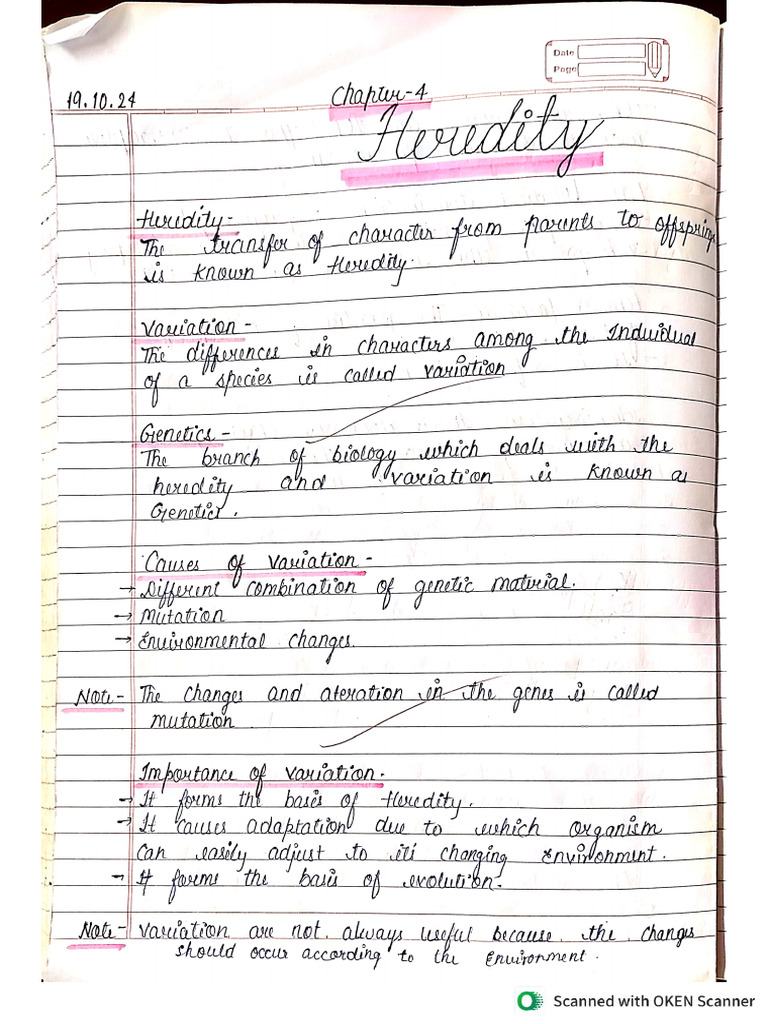 Date
Page
19.10.24
Chapter-4
Heredity
Heredity-
The transfer of character from parents to offsprings
is known as Heredity.
Variation -
The differences in characters among the Individual
of a species is called variation
Genetics -
The branch of biology which deals with the
heredity and variation is known as
Genetics.
Causes of variation -
→ Different combination of genetic material.
→ Mutation
→ Environmental changes.
Note - The changes and ateration in the genes is called
mutation
Importance of variation.
→ It forms the bases of Heredity.
→ It causes adaptation due to which organism
can easily adjust to its changing Environment.
→ It forms the basis of evolution.
Note - Variation are not always useful because the changes
should occur according to the Environment.
Scanned with OKEN Scanner